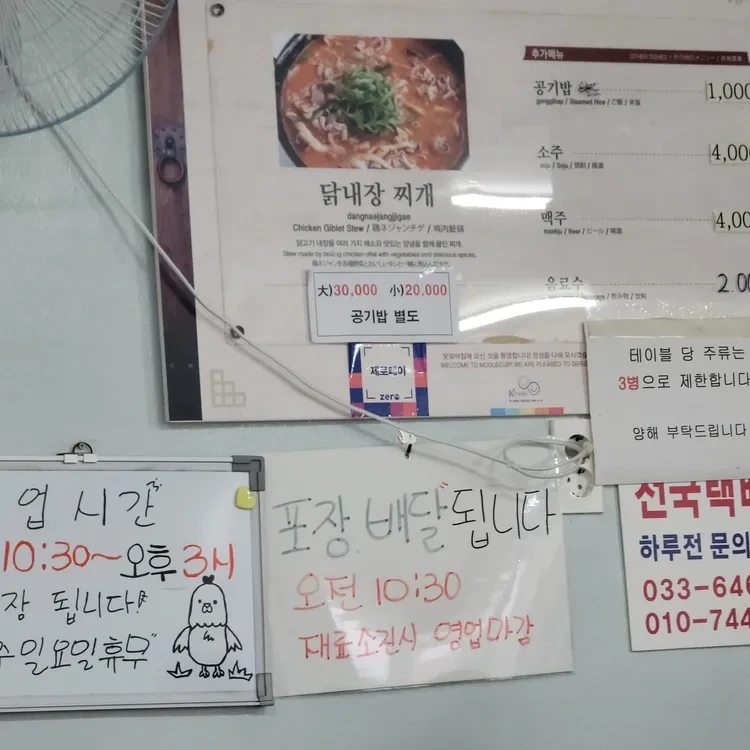 닭내장 찌개
dangnaejangjjigae
Chicken Giblet Stew / 鶏ネジャンチゲ / 鸡内脏锅
닭고기 내장을 여러 가지 채소와 맛있는 양념을 함께 끓인 찌개.
Stew made by boiling chicken offal with vegetables and delicious spices.
大)30,000 小)20,000
공기밥 별도
제로페이
zero
추가메뉴
OTHER DISHES
공기밥
1,000
gonggibap / Steamed Rice / ご飯 / 米饭
소주
4,00
soju / Soju / 焼酎 / 烧酒
맥주
4,00
maekju / Beer / ビール / 啤酒
음료수
2.00
飲み物 / 饮料
WELCOME TO MOSUEOJIP! WE ARE PLEASED TO SERV
테이블 당 주류는
3병으로 제한합니다
양해 부탁드립니다
업 시간
10:30~오후3시
장 됩니다!
수 일요일휴무
포장 배달 됩니다
오전 10:30
재료소진시 영업마감
전국택배
하루전 문의
033-646
010-744